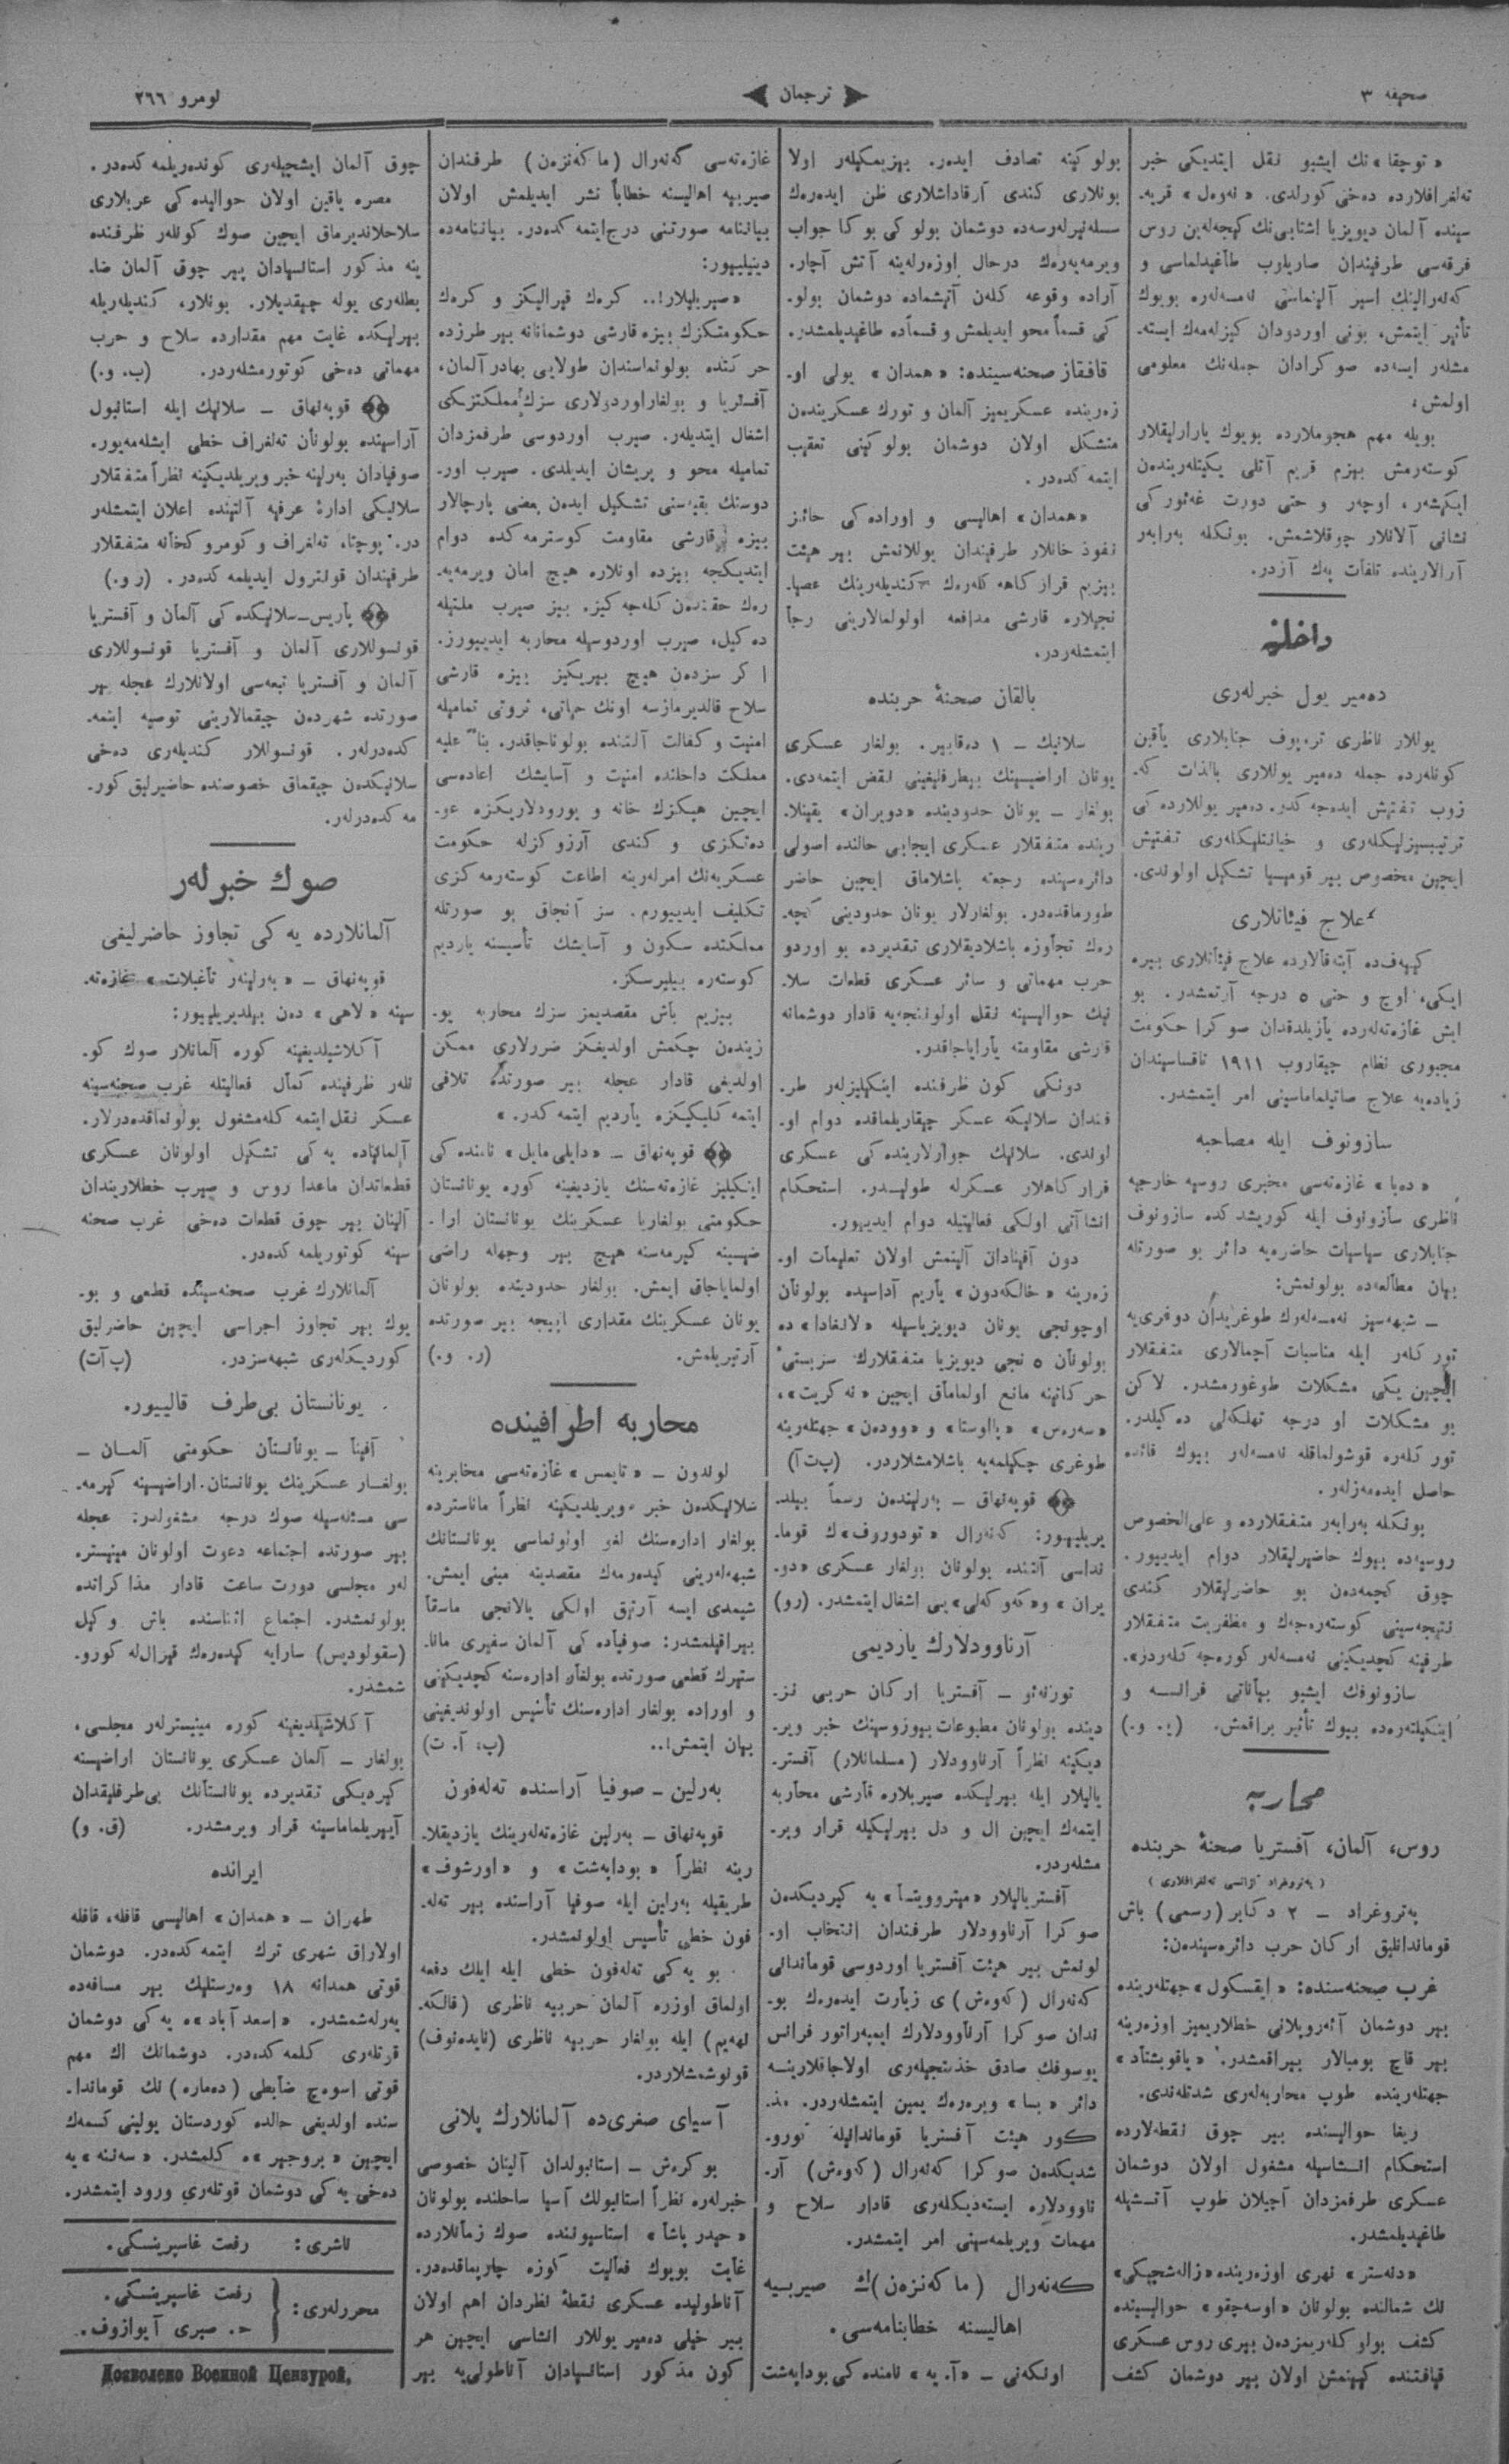 صحیفه ۳
ترجمان
نومرو ۲۶۶
« توچقا » نك ایشبو نقل ایتدیكی خبر
تەلغرافلارده دەخی كورلدی. « نەوەل » قریه‌-
سینده آلمان دیویزیا اشتابی‌نك كیجه‌لەین روس
فرقه‌سی طرفیندان صاریلوب طاغیدلماسی و
كه‌نه‌رالینك اسیر آلینماسی نه‌مسه‌لەره بویوك
تأثیر ایتمش، بونی اوردودان كیزله‌مه‌ك ایسته‌-
مشلەر ایسه‌ده صوكرادان جمله‌نك معلومی
اولمش،
بویله مهم هجوملارده بویوك یارارلیقلار
كوسته‌رمش بیزم قریم آتلی یكیتله‌ریندەن
ایكیشەر، اوچەر و حتی دورت غه‌ئورگی
نشانی آلانلار چوقلاشمش. بونكله برابەر
آرالارینده تلفات پەك آزدر.
داخلیه
ده‌میر یول خبرلەری
یوللار ناظری تره‌پوف جنابلاری یاقین
كونلەرده جمله ده‌میر یوللاری بالذات كه‌-
زوب تفتیش ایده‌جه‌كدر. ده‌میر یوللارده‌كی
ترتیبسیزلیكلەری و خیانتلیكلەری تفتیش
ایچین مخصوص بیر قومیسیا تشكیل اولوندی.
علاج فیئاتلاری
كیه‌ف‌ده آپته‌قالارده علاج فیئاتلاری بیره
ایكی، اوچ و حتی ٥ درجه آرتمشدر. بو
ایش غازه‌ته‌لەرده یازیلدقدان صوكرا حكومت
مجبوری نظام چیقاروب ۱۹۱۱ تاقساسیندان
زیاده‌یه علاج صاتیلماماسینی امر ایتمشدر.
سازونوف ایله مصاحبه
« ده‌با » غازه‌ته‌سی مخبری روسیه خارجیه
ناظری سازونوف ایله كوریشدكده سازونوف
جنابلاری سیاسیات حاضره‌یه دائر بو صورتله
بیان مطالعه‌ده بولونمش:
ـ شبهه‌سیز نه‌مسه‌لەرك طوغریدان دوغری‌یه
تورکلەر ایله مناسبات آچمالاری متفقلار
ایچین یكی مشكلات طوغورمشدر. لاكن
بو مشكلات او درجه تهلكه‌لی دەكیلدر.
توركلەره قوشولماقله نه‌مسه‌لەر بیوك فائده
حاصل ایده‌مه‌زلەر.
بونكله برابەر متفقلارده و علی‌الخصوص
روسیه‌ده بیوك حاضیرلیقلار دوام ایدییور.
چوق كچمه‌دەن بو حاضرلیقلار كندی
نتیجه‌سینی كوسته‌ره‌جه‌ك و مظفریت متفقلار
طرفینه كچدیكینی نه‌مسه‌لەر كوره‌جه‌كلەردز».
سازونوفك ایشبو بیاناتی فرانسه و
اینكیلته‌رەده بیوك تأثیر براقمش. (پ. و.)
محاربه
روس، آلمان، آفستریا صحنهٔ حربنده
( په‌تروغراد آژانسی تەلغرافلاری )
په‌تروغراد ـ ۲ دكابر (رسمی) باش
قوماندانلیق اركان حرب دائره‌سیندەن:
غرب صحنه‌سنده: « ایقسكول » جهتلەرینده
بیر دوشمان آئەروپلانی خطلاریمیز اوزەرینه
بیر قاچ بومبالار بیراقمشدر. « یاقوبشتاد »
جهتلەرینده طوپ محاربه‌لەری شدتلەندی.
ریغا حوالیسنده بیر چوق نقطه‌لارده
استحكام انشاسیله مشغول اولان دوشمان
عسكری طرفمزدان آجیلان طوپ آتشیله
طاغیدیلمشدر.
« دنه‌ستر » نهری اوزەرینده « زالەشچیكی »
نك شمالنده بولونان « اوسەچقو » حوالیسینده
كشف بولوكلەریمزدەن بیری روس عسكری
قیافتنده كیینمش اولان بیر دوشمان كشف
بولوكینه تصادف ایدەر. بیزیمكیلەر اولا
بونلاری كندی آرقاداشلاری ظن ایدەرەك
سسله‌نیرلەرسه‌ده دوشمان بولوكی بوكا جواب
ویرمه‌یەرەك درحال اوزەرلەینه آتش آچار.
آراده وقوعه كلەن آتیشماده دوشمان بولو-
كی قسماً محو ایدیلمش و قسماً‌ده طاغیدیلمشدر.
قافقاز صحنه‌سینده: « همدان » یولی او-
زەرینده عسكریمیز آلمان و تورك عسكریندەن
متشكل اولان دوشمان بولوكینی تعقیب
ایتمه‌كده‌در.
«همدان» اهالیسی و اوراده‌كی حائز
نفوذ خانلار طرفیندان یوللانمش بیر هیئت
بیزیم قرارگاهه كلەرەك كندیلەرینك عصیا-
نجیلاره قارشی مدافعه اولونمالارینی رجأ
ایتمشلەردر.
بالقان صحنهٔ حربنده
سلانیك ـ ۱ دەقابیر. بولغار عسكری
یونان اراضیسینك بیطرفلیغینی نقض ایتمه‌دی.
بولغار ـ یونان حدودینده «دویران» یقینلا-
رینده متفقلار عسكری ایجابی حالنده اصولی
دائره‌سینده رجعته باشلاماق ایچین حاضر
طورماقده‌در. بولغارلار یونان حدودینی كچه-
رەك تجاوزه باشلادیقلاری تقدیرده بو اوردو
حرب مهماتی و سائر عسكری قطعات سلا-
نیك حوالیسینه نقل اولوننجه‌یه قادار دوشمانه
قارشی مقاومته یارایاجاقدر.
دونكی كون ظرفنده اینكیلیزلەر طر-
فندان سلانیكه عسكر چیقاریلماقده دوام او-
لوندی. سلانیك جوارلارینده‌كی عسكری
قرارگاهلار عسكرله طولیدر. استحكام
انشاآتی اولكی فعالیتیله دوام ایدییور.
دون آفینادان آلینمش اولان تعلیمات او-
زەرینه « خالكه‌دون » یاریم آداسیده بولونان
اوچونجی یونان دیویزیاسیله « لانغادا » ده
بولونان ٥ نجی دیویزیا متفقلارك سربستی
حركاتینه مانع اولماماق ایچین « نه‌گریت »،
«سەرەس» « بااوستا » و «وودەن» جهتلەرینه
طوغری چكیلمه‌یه باشلامشلاردر. (پ‌ت آ)
قوپه‌نهاق ـ برلیندەن رسماً بیلد-
یریلییور: كه‌نه‌رال « تودوروف » ك قوما-
نداسی آلتنده بولونان بولغار عسكری «دو-
یران » و « كه‌وگه‌لی » یی اشغال ایتمشدر. (ر‌و)
آرناوودلارك یاردیمی
تورنه‌ئو ـ آفستریا اركان حربی نز-
دینده بولونان مطبوعات بیوروسینك خبر ویر-
دیكینه نظراً آرناوودلار (مسلمانلار) آفستر-
یالیلار ایله بیرلیكده صیربلاره قارشی محاربه
ایتمه‌ك ایچین ال و دل بیرلیكیله قرار ویر-
مشلەردر.
آفستریالیلار « میتروویتسا » یه كیردیكدەن
صوكرا آرناوودلار طرفندان انتخاب او-
لونمش بیر هیئت آفستریا اوردوسی قوماندانی
كه‌نه‌رال (كه‌وەش) ی زیارت ایدەرەك بو-
ندان صوكرا آرناوودلارك ایمپه‌راتور فرانس
یوسوفك صادق خذمتچیلەری اولاجاقلارینه
دائر « بسا » ویرەرەك یمین ایتمشلەردر. مذ-
كور هیئت آفستریا قوماندانیله كورو-
شدیكدەن صوكرا كه‌نه‌رال (كه‌وەش) آر-
ناوودلاره ایسته‌دیكلەری قادار سلاح و
مهمات ویریلمه‌سینی امر ایتمشدر.
كه‌نه‌رال (ماكه‌نزەن)ك صیربیه
اهالیسنه خطابنامه‌سی.
اونگه‌نی ـ « آ. یه » نامنده‌كی بودا‌پەشت
غازه‌ته‌سی گه‌نه‌رال (ماكه‌نزەن) طرفندان
صیربیه اهالیسنه خطاباً نشر ایدیلمش اولان
بیاننامه صورتنی درج‌ایتمه‌كده‌در. بیاننامه‌ده
دینیلییور:
«صیربلیلار!.. كرەك قیرالیكز و كرەك
حكومتكزك بیزه قارشی دوشمانانه بیر طرزده
حركتده بولونماسندان طولایی بهادر آلمان،
آفستریا و بولغار‌اوردولاری سزك مملكتكزی
اشغال ایتدیلەر. صیرب اوردوسی طرفمزدان
تمامیله محو و پریشان ایدیلدی. صیرب اور-
دوسنك بقیه‌سنی تشكیل ایدەن بعضی پارچالار
بیزه قارشی مقاومت كوسترمه‌كده دوام
ایتدیكجه بیزده اونلاره هیچ امان ویرمه‌یه-
رەك حقندەن كله‌جه‌كیز. بیز صیرب ملتیله
دەكیل، صیرب اوردوسیله محاربه ایدییورز.
اكر سزدەن هیچ بیریكیز بیزه قارشی
سلاح قالدیرمازسه اونك حیاتی، ثروتی تمامیله
امنیت و كفالت آلتنده بولوناجاقدر. بناءً علیه
مملكت داخلنده امنیت و آسایشك اعاده‌سی
ایچین هیكزك خانه و یورودلاریكزه عو-
دەتكزی و كندی آرزوكزله حكومت
عسكریه‌نك امرلەرینه اطاعت كوسته‌رمه‌كزی
تكلیف ایدییورم. سز آنجاق بو صورتله
مملكتده سكون و آسایشك تأسیسنه یاردیم
كوسته‌ره بیلیرسكز.
بیزیم باش مقصدیمز سزك محاربه یو-
زیندەن چكمش اولدیغكز ضررلاری ممكن
اولدیغی قادار عجله بیر صورتده تلافی
ایتمه‌كلیكیكزه یاردیم ایتمه‌كدر. »
قوپه‌نهاق ـ « دایلی مایل » نامنده‌كی
اینكیلیز غازه‌ته‌سنك یازدیغینه كوره یونانستان
حكومتی بولغاریا عسكرینك یونانستان ارا-
ضیسینه كیرمه‌سنه هیچ بیر وجهله راضی
اولمایاجاق ایمش. بولغار حدودینده بولونان
یونان عسكرینك مقداری اییجه بیر صورتده
آرتیریلمش. (ر. و.)
محاربه اطرافینده
لوندون ـ « تایمس » غازه‌ته‌سی مخابرینه
سلانیكدەن خبر ویریلدیكینه نظراً ماناسترده
بولغار اداره‌سنك لغو اولونماسی یونانستانك
شبهه‌لەرینی كیده‌رمه‌ك مقصدینه مبنی ایمش.
شیمدی ایسه آرتیق اولكی یالانجی ماسقا
بیراقیلمشدر: صوفیاده‌كی آلمان سفیری مانا-
ستیرك قطعی صورتده بولغار اداره‌سنه كچدیكینی
و اوراده بولغار اداره‌سنك تأسیس اولوندیغینی
بیان ایتمش!.. (پ. آ. ت)
بەرلین ـ صوفیا آراسنده تەلەفون
قوپه‌نهاق ـ بەرلین غازه‌ته‌لەرینك یازدیقلا-
رینه نظراً « بودا‌پەشت » و « اورشوف »
طریقیله بەرلین ایله صوفیا آراسنده بیر تەلە-
فون خطی تأسیس اولونمشدر.
بو یەكی تەلەفون خطی ایله ایلك دفعه
اولماق اوزره آلمان حربیه ناظری (فالكه-
نهه‌یم) ایله بولغار حربیه ناظری (نایدەنوف)
قونوشمشلاردر.
آسیای صغری‌ده آلمانلارك پلانی
بوكرەش ـ استانبولدان آلینان خصوصی
خبرلەره نظراً استانبولك آسیا ساحلنده بولونان
« حیدر پاشا » استاسیونینده صوك زمانلارده
غایت بویوك فعالیت كوزه چارپماقده‌در.
آناطولیده عسكری نقطهٔ نظردان اهم اولان
بیر خیلی ده‌میر یوللار انشاسی ایچین هر
كون مذكور استانسیادان آناطولی‌یه بیر
چوق آلمان ایشچیلەری كوندەریلمه‌كده‌در.
مصره یاقین اولان حوالیده‌كی عربلاری
سلاحلاندیرماق ایچین صوك كونلەر ظرفنده
ینه مذكور استانسیادان بیر چوق آلمان ضا-
بطلەری یوله چیقدیلار. بونلار، كندیلەریله
بیرلیكده غایت مهم مقدارده سلاح و حرب
مهماتی دەخی كوتورمشلەردر. (ب. و.)
قوپه‌نهاق ـ سلانیك ایله استانبول
آراسینده بولونان تەلغراف خطی ایشله‌مه‌یور.
صوفیادان بەرلینه خبر ویریلدیكینه نظراً متفقلار
سلانیكی ادارهٔ عرفیه آلتینده اعلان ایتمشلەر
در. پوچتا، تەلغراف و كومروكخانه متفقلار
طرفیندان قونترول ایدیلمه‌كده‌در. (ر و.)
پاریس‌ـ‌سلانیكده‌كی آلمان و آفستریا
قونسوللاری آلمان و آفستریا قونسوللاری
آلمان و آفستریا تبعه‌سی اولانلارك عجله بیر
صورتده شهردەن چیقمالارینی توصیه ایتمه-
كده‌درلەر. قونسوللار كندیلەری دەخی
سلانیكدەن چیقماق خصوصنده حاضیرلیق كور-
مه‌كده‌درلەر.
صوك خبرلەر
آلمانلارده یەكی تجاوز حاضرلیغی
قوپه‌نهاق ـ « بەرلینەر تاغبلات » غازه‌ته-
سینه « لاهی » دەن بیلدیریلییور:
آكلاشیلدیغینه كوره آلمانلار صوك كو-
نلەر ظرفینده كمال فعالیتله غرب صحنه‌سینه
عسكر نقل ایتمه‌كله‌مشغول بولونماقده‌درلار.
آلمانیاده یەكی تشكیل اولونان عسكری
قطعاتدان ماعدا روس و صیرب خطلاریندان
آلینان بیر چوق قطعات دەخی غرب صحنه
سینه كوتوریلمه‌كده‌در.
آلمانلارك غرب صحنه‌سینده قطعی و بو-
یوك بیر تجاوز اجراسی ایچین حاضرلیق
كوردیكلەری شبهه‌سزدر. (پ آ‌ت)
یونانستان بی‌طرف قالییور.
آفینا ـ یونانستان حكومتی آلمان ـ
بولغار عسكرینك یونانستان اراضیسینه كیرمه-
سی مسئله‌سیله صوك درجه مشغولدر: عجله
بیر صورتده اجتماعه دعوت اولونان مینیستر-
لەر مجلسی دورت ساعت قادار مذاكراتده
بولونمشدر. اجتماع اثناسنده باش وكیل
(سقولودیس) سارایه كیدەرەك قیرال‌له كورو-
شمشدر.
آكلاشیلدیغینه كوره مینیسترلەر مجلسی،
بولغار ـ آلمان عسكری یونانستان اراضیسنه
كیردیكی تقدیرده یونانستانك بی‌طرفلیقدان
آیریلماماسینه قرار ویرمشدر. (ق. و)
ایرانده
طهران ـ « همدان » اهالیسی قافله، قافله
اولاراق شهری ترك ایتمه‌كده‌در. دوشمان
قوتی همدانه ۱۸ وەرستلیك بیر مسافه‌ده
یەرلەشمشدر. « اسعد آباد »ه یەكی دوشمان
قوتلەری كلمه‌كده‌در. دوشمانك اك مهم
قوتی اسوەچ ضابطی (دەماره) نك قوماندا-
سنده اولدیغی حالده كوردستان یولینی كسمه‌ك
ایچین « بروجیر »ه كلمشدر. « سه‌ننه » یه
دەخی یەكی دوشمان قوتلەری ورود ایتمشدر.
ناشری: رفعت غاسپرینسكی.
محررلەری: رفعت غاسپرینسكی.
ح. صبری آیوازوف.
Дозволено Военной Цензурой.